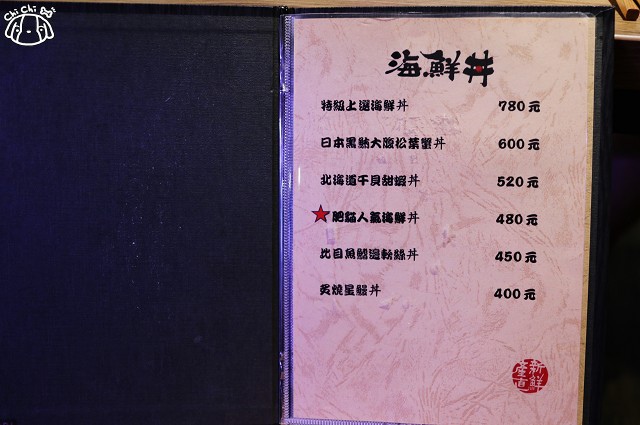 Chi Chi
海鮮丼
特級上選海鮮丼 780元
日本黑鮪大腹松葉蟹丼 600元
北海道干貝甜蝦丼 520元
★肥貓人氣海鮮丼 480元
比目魚鰭邊粉絲丼 450元
炙燒星鰻丼 400元
新鮮
產直